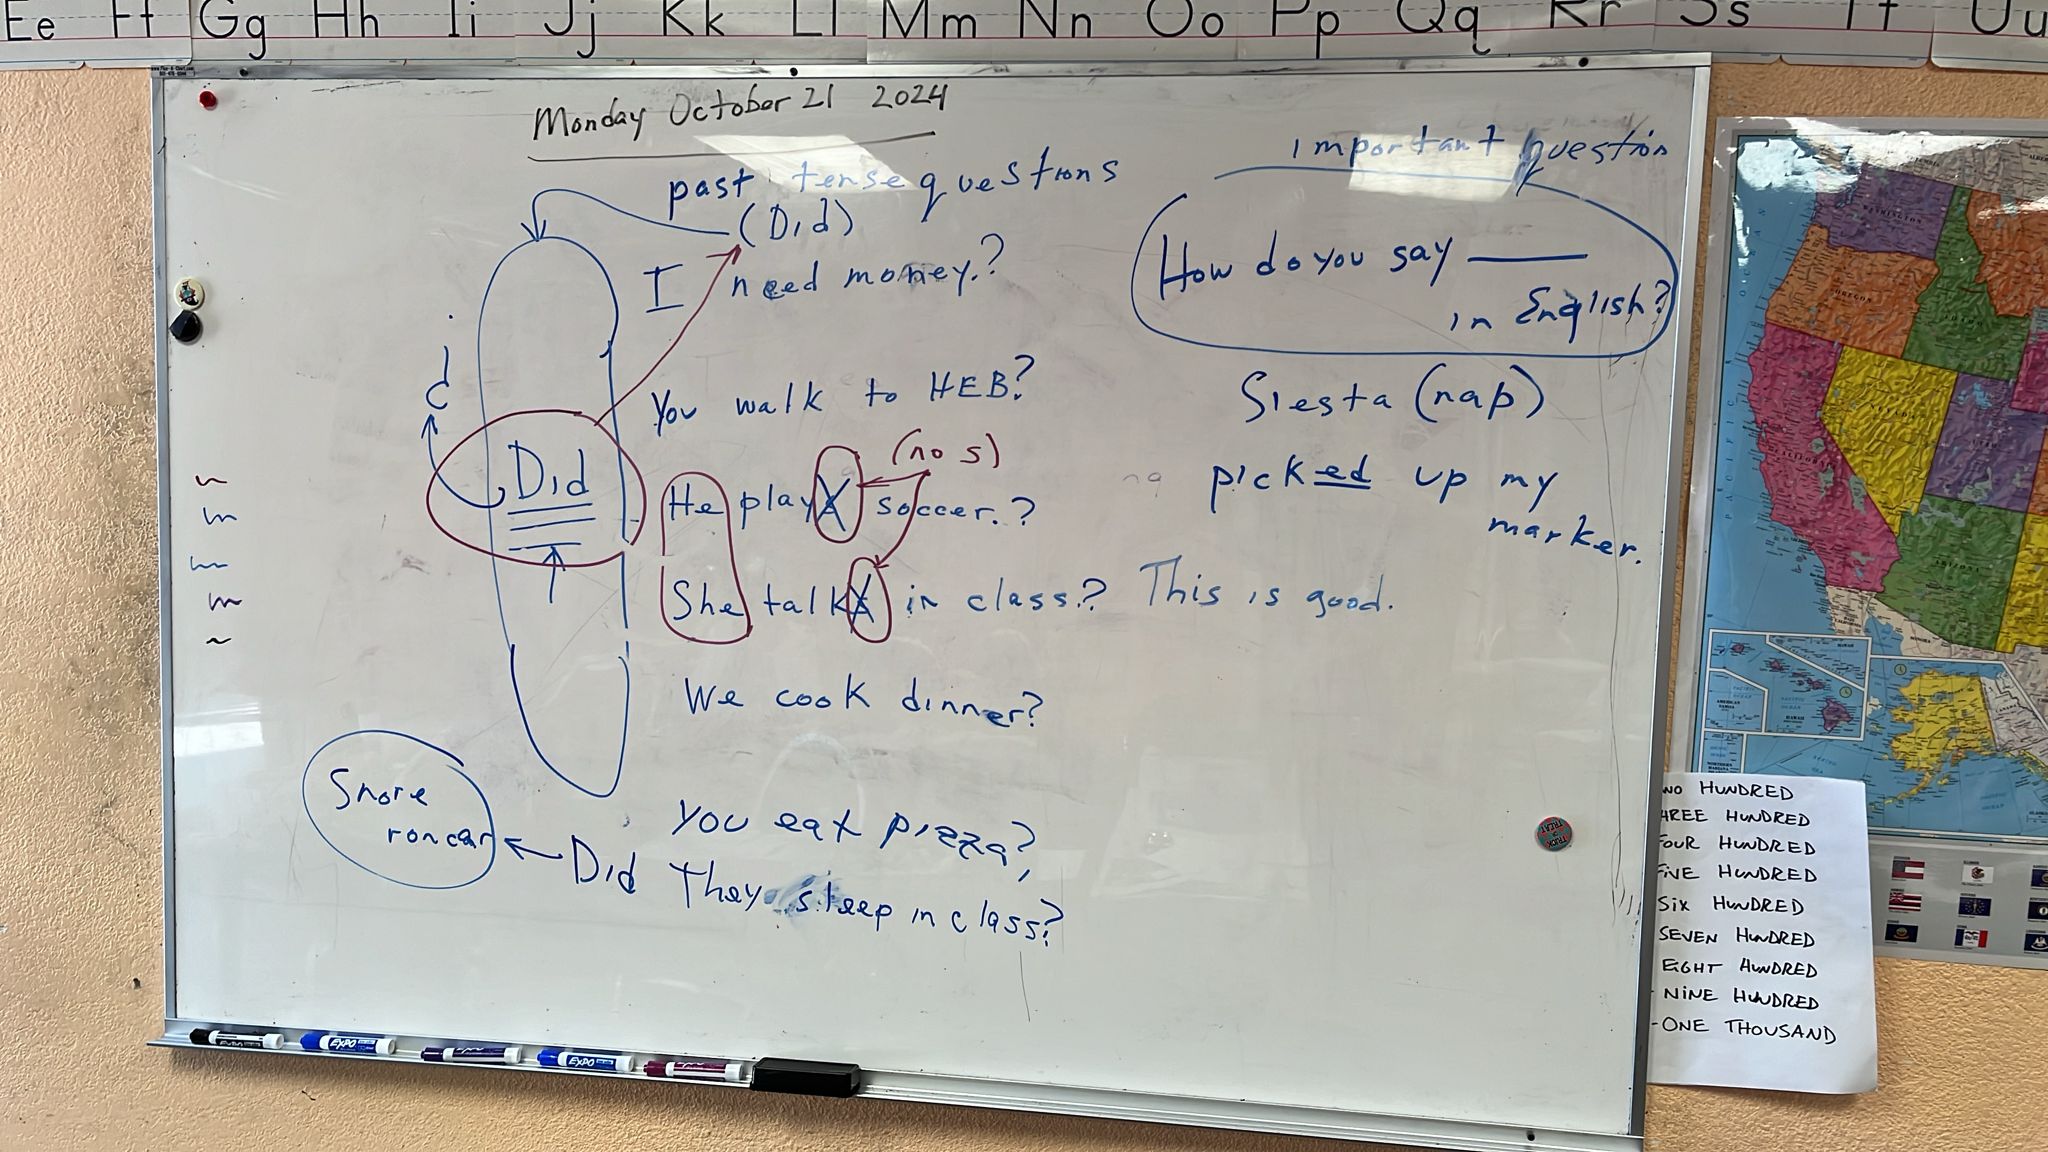 Ee Ff Gg Hh Ii Jj Kk Ll Mm Nn Oo Pp Qq Rr Ss Tt Uu
Monday October 21 2024
past tense questions
(Did)
I need money.?
You walk to HEB?
(no s)
Did
He plays soccer.?
She talks in class.? This is good.
We cook dinner?
You eat pizza?
Did They sleep in class?
Snore
roncar
important question
How do you say ____
in English?
Siesta (nap)
picked up my
marker.
WASHINGTON
OREGON
IDAHO
NEVADA
UTAH
CALIFORNIA
ARIZONA
PACIFIC OCEAN
HAWAII
WO HUNDRED
HREE HUNDRED
FOUR HUNDRED
FIVE HUNDRED
SIX HUNDRED
SEVEN HUNDRED
EIGHT HUNDRED
- NINE HUNDRED
- ONE THOUSAND
TRICK OR TREAT
EXPO
EXPO